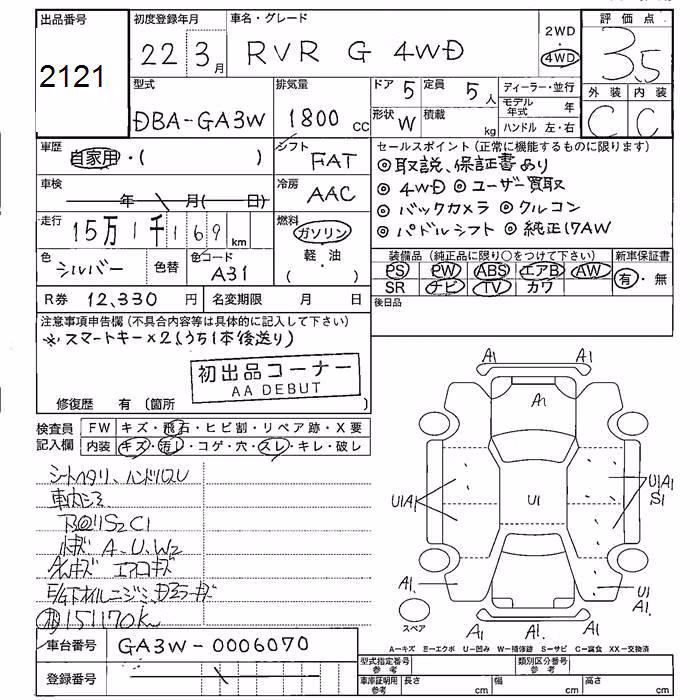 出品番号
2121
初度登録年月
22 3月
車名・グレード
RVR G 4WD
2WD
・
4WD
評価点
3.5
型式
DBA-GA3W
排気量
1800 cc
ドア 5
定員 5人
形状 W
積載 kg
ディーラー・並行
モデル年式 年
ハンドル 左・右
外装 内装
C C
車歴
自家用・( )
シフト
FAT
車検
年 月( 日)
冷房
AAC
走行
15万1千169km
燃料
ガソリン
・
軽・油
色
シルバー
色替
色コード
A31
R券 12,330 円
名変期限 月 日
セールスポイント(正常に機能するものに限ります)
◎取説、保証書あり
◎4WD ◎ユーザー買取
◎バックカメラ ◎クルコン
◎パドルシフト ◎純正17AW
装備品(純正品に限り○をつけて下さい)
PS PW ABS エアB AW
SR ナビ TV カワ
新車保証書
有・無
後日品
注意事項申告欄(不具合内容等は具体的に記入して下さい)
※スマートキー×2(うち1本後送り)
初出品コーナー
AA DEBUT
修復歴 有(箇所 )
検査員記入欄
FW キズ・飛石・ヒビ割・リペア跡・X要
内装 キズ・汚し・コゲ・穴・スレ・キレ・破し
シートヘタリ、ハンドルスレ
車内シミ
下回りS2C1
A.U.W2
エアロキズ
151170k
車台番号 GA3W-0006070
登録番号
A1 A1
A1
U1A1
U1
U1A1
S1
A1.
U1
A1.
スペア
A1 A1. A1
A―キズ E―エクボ U―凹み W―補修跡 S―サビ C―腐食 XX―交換済
型式指定番号
参考
類別区分番号
参考
車庫証明用
参考
長さ cm
幅 cm
高さ cm